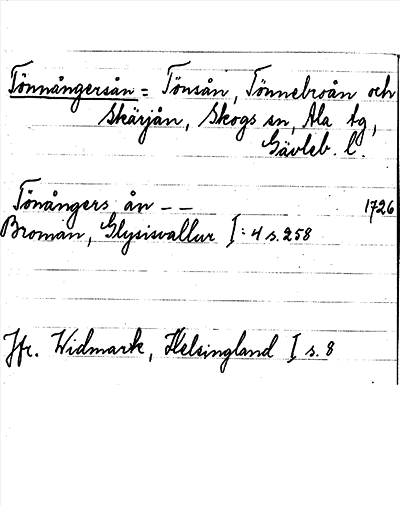 Tönnångersån = Tönsån, Tönnebroån och
Skärjån, Skogs sn, Ala tg,
Gävleb. l.
Tönångers ån – – 1726
Broman, Glysisvallur I: 4 s. 258
Jfr. Widmark, Helsingland I s. 8